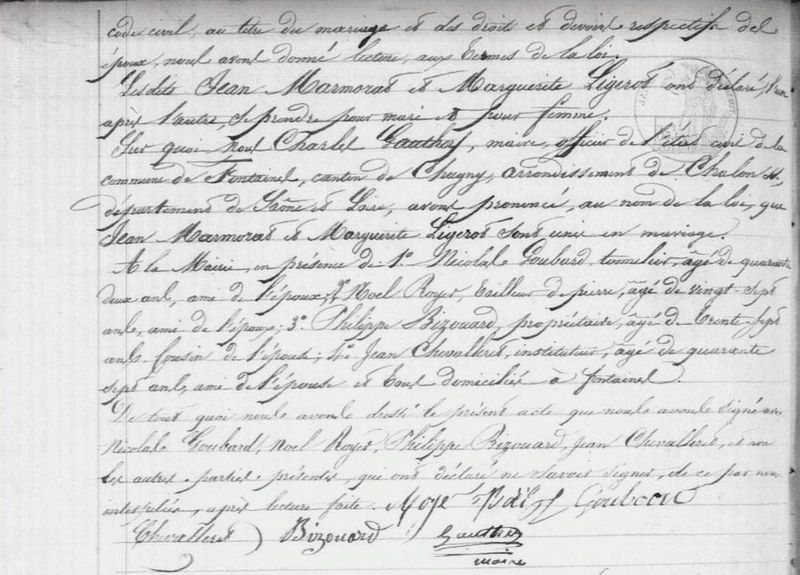 code civil, au titre du mariage et des droits et devoirs respectifs des
époux, nous avons donné lecture, aux termes de la loi.
Lesdits Jean Marmorat et Marguerite Ligerot ont déclaré, l'un
après l'autre, se prendre pour mari et pour femme.
Sur quoi nous Charles Gauthey, maire, officier de l'état civil de la
commune de Fontaines, canton de Chagny, arrondissement de Chalon s. s.,
département de Saône et Loire, avons prononcé, au nom de la loi, que
Jean Marmorat et Marguerite Ligerot sont unis en mariage.
A la Mairie, en présence de 1° Nicolas Goubard, tonnelier, âgé de quarante
deux ans, ami de l'époux; 2° Noel Royer, tailleur de pierre, âgé de vingt-sept
ans, ami de l'époux; 3° Philippe Bizouard, propriétaire, âgé de trente-sept
ans, cousin de l'épouse; 4° Jean Chevalleret, instituteur, âgé de quarante
sept ans, ami de l'épouse et tous domiciliés à Fontaines.
De tout quoi nous avons dressé le présent acte que nous avons signé avec
Nicolas Goubard, Noel Royer, Philippe Bizouard, Jean Chevalleret, et non
les autres parties présentes, qui ont déclaré ne savoir signer, de ce par nous
interpellés, après lecture faite.
Goubard
Chevalleret Bizouard Gauthey
maire